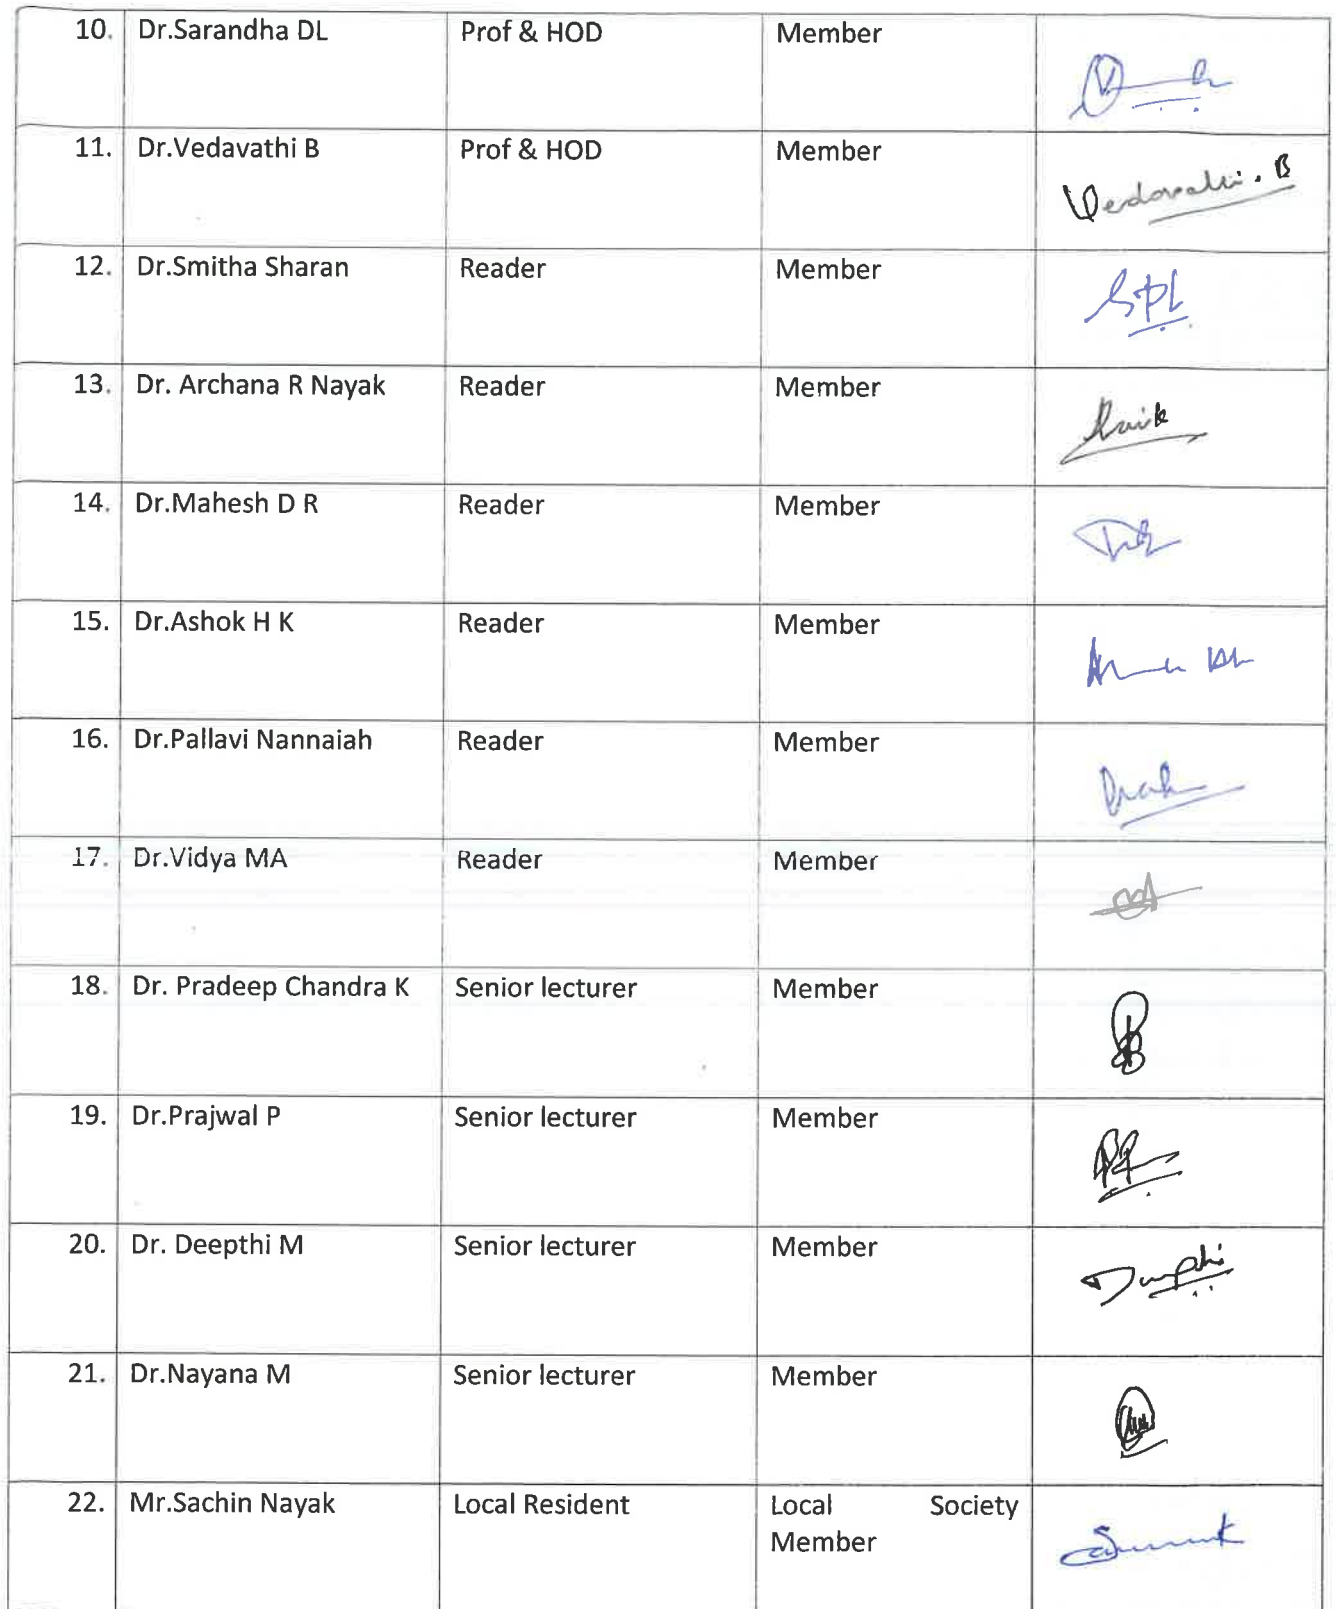 10. Dr.Sarandha DL Prof & HOD Member
11. Dr.Vedavathi B Prof & HOD Member Vedavathi. B
12. Dr.Smitha Sharan Reader Member
13. Dr. Archana R Nayak Reader Member
14. Dr.Mahesh D R Reader Member
15. Dr.Ashok H K Reader Member
16. Dr.Pallavi Nannaiah Reader Member
17. Dr.Vidya MA Reader Member
18. Dr. Pradeep Chandra K Senior lecturer Member
19. Dr.Prajwal P Senior lecturer Member
20. Dr. Deepthi M Senior lecturer Member
21. Dr.Nayana M Senior lecturer Member
22. Mr.Sachin Nayak Local Resident Local Society
Member